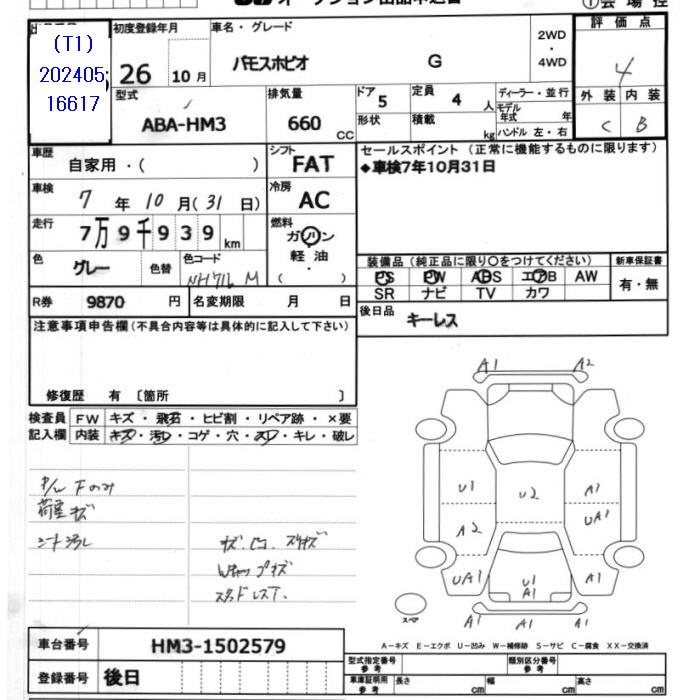 オークション出品申込書 ①会場控
(T1)
202405
16617
初度登録年月 車名・グレード 2WD 評価点
26 10月 バモスホビオ G ・ 4
4WD
型式 排気量 ドア 定員 ディーラー・並行 外装 内装
ABA-HM3 660 CC 5 4 人 モデル年式 年 C B
形状 積載 kg ハンドル 左・右
車歴 シフト セールスポイント (正常に機能するものに限ります)
自家用・( ) FAT ◆車検7年10月31日
車検 冷房
7 年 10 月(31 日) AC
走行 燃料
7万9千939 km ガソリン
軽油
( )
色 色替 色コード
グレー NH716M
装備品(純正品に限り○をつけてください) 新車保証書
PS PW ABS エアB AW 有・無
SR ナビ TV カワ
R券 9870 円 名変期限 月 日
後日品 キーレス
注意事項申告欄(不具合内容等は具体的に記入して下さい)
修復歴 有 〔箇所 〕
検査員 FW キズ・飛石・ヒビ割・リペア跡・×要
記入欄 内装 キズ・汚レ・コゲ・穴・スレ・キレ・破レ
P/W Fのみ
荷室キズ
シート汚レ
A1 A2
U1 U2 A1
A2 UA1
UA1 U1 A1
A1
A1 A1
スペア
A-キズ E-エクボ U-凹み W-補修跡 S-サビ C-腐食 XX-交換済
車台番号 HM3-1502579
登録番号 後日
型式指定番号 参考 類別区分番号 参考
車庫証明用 参考 長さ cm 幅 cm 高さ cm